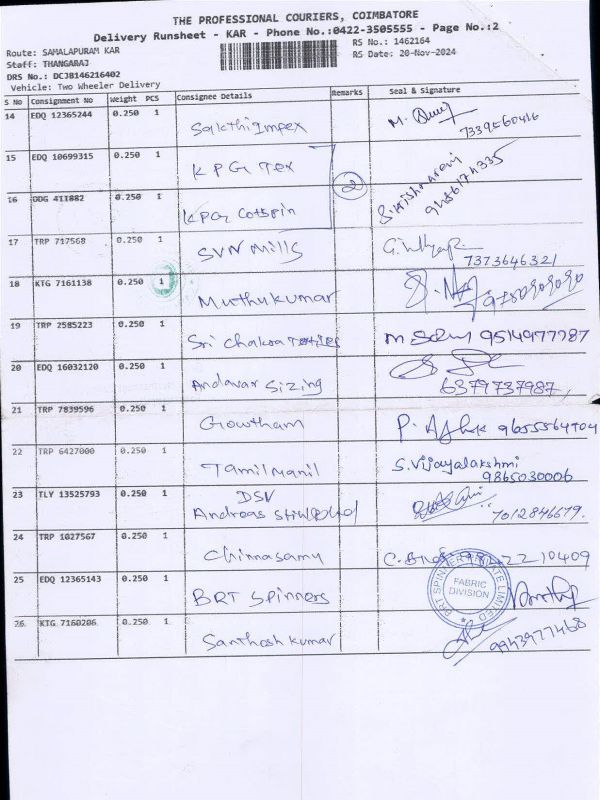 THE PROFESSIONAL COURIERS, COIMBATORE
Delivery Runsheet - KAR - Phone No.:0422-3505555 - Page No.:2
Route: SAMALAPURAM KAR
RS No.: 1462164
Staff: THANGARAJ
RS Date: 20-Nov-2024
DRS No.: DCJB146216402
Vehicle: Two Wheeler Delivery
S No Consignment No Weight PCS Consignee Details Remarks Seal & Signature
14 EDQ 12365244 0.250 1 Sakthi Impex M. 7339560416
15 EDQ 10699315 0.250 1 KPG Tex
2
16 ODG 411882 0.250 1 KPG Cotspin
17 TRP 717568 0.250 1 SVN Mills 7373646321
18 KTG 7161138 0.250 1 Muthukumar
19 TRP 2585223 0.250 1 Sri Chakra Textiles 9514977787
20 EDQ 16032120 0.250 1 Andavar Sizing 6379737987
21 TRP 7839596 0.250 1 Gowtham P. 9655564704
22 TRP 6427000 0.250 1 Tamilmanil S. Vijayalakshmi
9865030006
23 TLY 13525793 0.250 1 DSV
Andreas 7012846679.
24 TRP 1027567 0.250 1 Chinnasamy
25 EDQ 12365143 0.250 1 BRT Spinners
BRT SPINNERS PRIVATE LIMITED
FABRIC
DIVISION
26 KTG 7160206 0.250 1 Santhosh kumar 9943977468